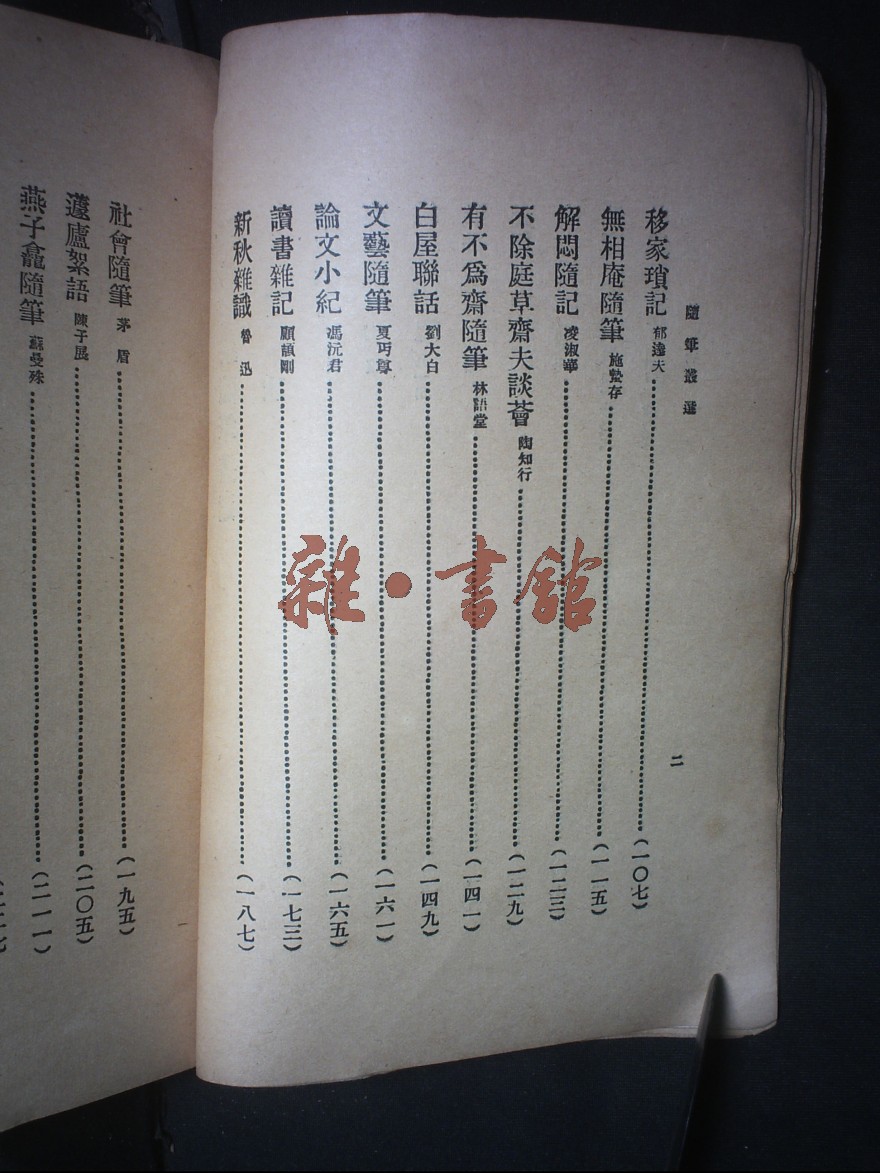 隨筆叢選
二
移家瑣記 郁達夫……(一〇七)
無相庵隨筆 施蟄存……(一一五)
解悶隨記 凌淑華……(一二三)
不除庭草齋夫談薈 陶知行……(一二九)
有不爲齋隨筆 林語堂……(一四一)
白屋聯話 劉大白……(一四九)
文藝隨筆 夏丏尊……(一六一)
論文小紀 馮沅君……(一六五)
讀書雜記 顧頡剛……(一七三)
新秋雜識 魯迅……(一八七)
社會隨筆 茅盾……(一九五)
蘧廬絮語 陳子展……(二〇五)
燕子龕隨筆 蘇曼殊……(二一一)
雜·書館